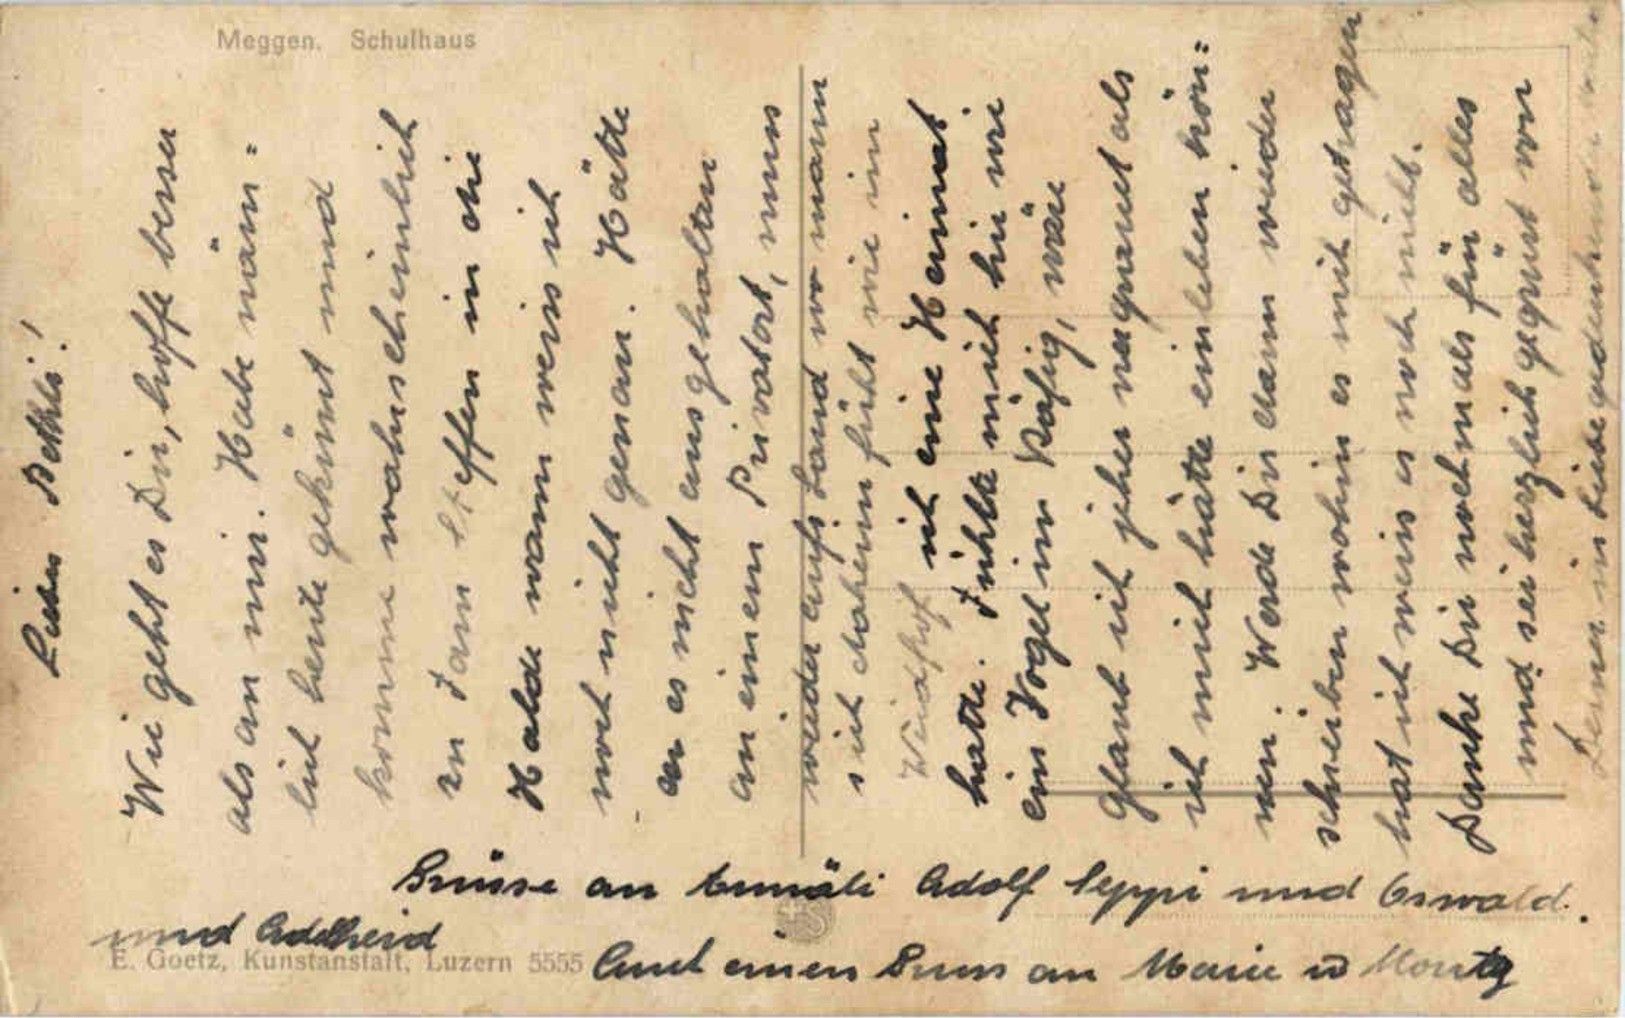 Meggen. Schulhaus
Lieber Bethli!
Wie geht es Dir, hoffe besser
als an mir. Habe näm=
lich heute gekünt und
komme wahrscheinlich
zu Fam Steffen in die
Halde wann weis ich
noch nicht genau. Hätte
er es nicht ausgehalten
an einem Privatort, mus
wieder aufs Land wo man
sich daheim fühlt wie im
Weidhof ich eine Heimat
hatte. Fühlte mich hie wie
ein Vogel im Käfig, wäre
glaub ich jeher vergraut als
ich mich hätte einleben kön=
nen. Werde Dir dann wieder
schreiben wohin es mich getragen
hat ich weis es noch nicht.
Danke Dir nochmals für alles
und sei herzlich gegrüst von
Deiner in Liebe gedenkender
Grüsse an Annäli Adolf Seppi und Oswald.
und Adelheid
Auch einen Gruss an Marie u Moritz
E. Goetz, Kunstanstalt, Luzern 5555